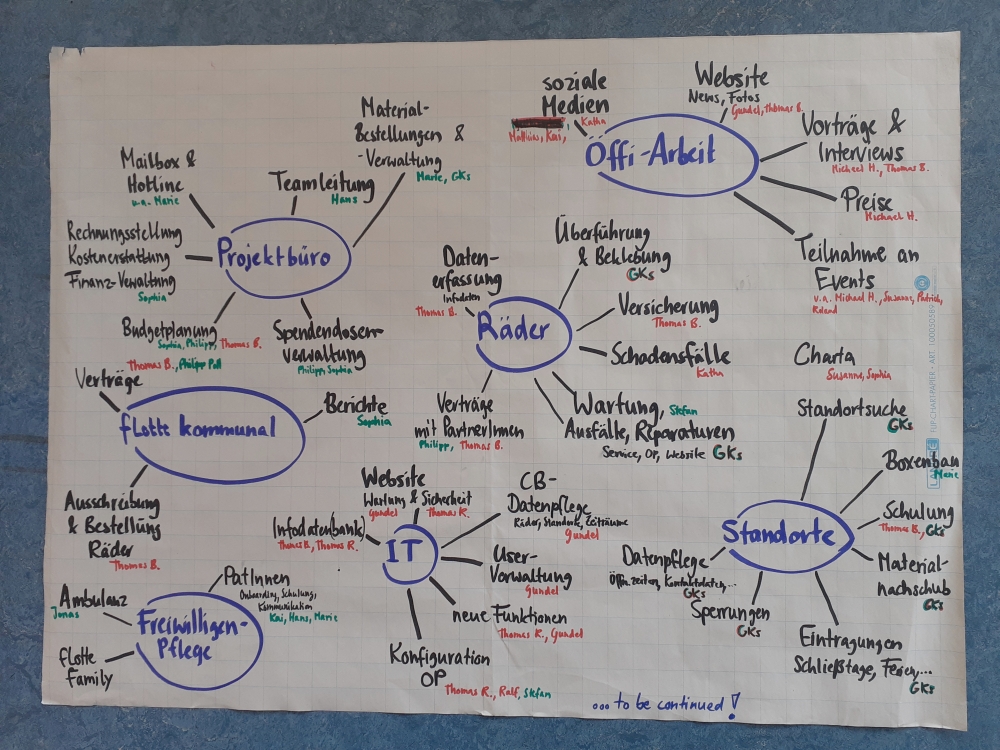 Projektbüro
Mailbox &
Hotline
u.a. Marie
Teamleitung
Hans
Material-
Bestellungen &
-Verwaltung
Marie, GKs
Rechnungsstellung
Kostenerstattung
Finanz-Verwaltung
Sophia
Budgetplanung
Sophia, Philipp, Thomas B.
Spendendosen-
verwaltung
Philipp, Sophia
Öffi-Arbeit
soziale
Medien
Matthias, Kai, Katha
Website
News, Fotos
Gundel, Thomas B.
Vorträge &
Interviews
Michael H., Thomas B.
Preise
Michael H.
Teilnahme an
Events
u.a. Michael H., Susanne, Patrick,
Roland
Räder
Daten-
erfassung
Infodaten
Thomas B.
Überführung
& Beklebung
GKs
Versicherung
Thomas B.
Schadensfälle
Katha
Wartung, Stefan
Ausfälle, Reparaturen
Service, OP, Website GKs
Verträge
mit PartnerInnen
Philipp, Thomas B.
Charta
Susanne, Sophia
flotte kommunal
Thomas B., Philipp Poll
Verträge
Berichte
Sophia
Ausschreibung
& Bestellung
Räder
Thomas B.
IT
Website
Wartung & Sicherheit
Gundel Thomas R.
Infodaten(bank)
Thomas B., Thomas R.
CB-
Datenpflege
Räder, Standorte, Zeiträume
Gundel
User-
Verwaltung
Gundel
neue Funktionen
Thomas R., Gundel
Konfiguration
OP
Thomas R., Ralf, Stefan
Standorte
Standortsuche
GKs
Boxenbau
Marie
Schulung
Thomas B., GKs
Material-
nachschub
GKs
Datenpflege
Öffn.zeiten, Kontaktdaten,...
GKs
Sperrungen
GKs
Eintragungen
Schließtage, Ferien,...
GKs
Freiwilligen-
Pflege
Ambulanz
Jonas
PatInnen
Onboarding, Schulung,
Kommunikation
Kai, Hans, Marie
flotte
family
... to be continued!